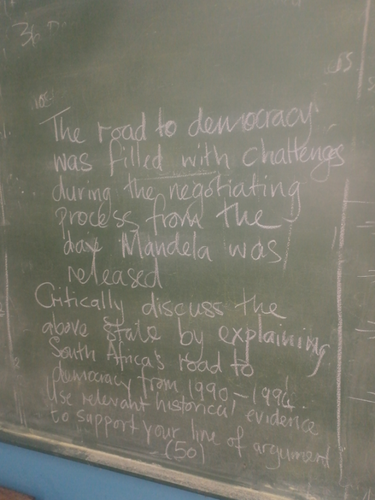 The road to democracy
was filled with challenges
during the negotiating
process from the
day Mandela was
released
Critically discuss the
above State by explaining
South Africa's road to
democracy from 1990-1994.
Use relevant historical evidence
to support your line of argument
(50)